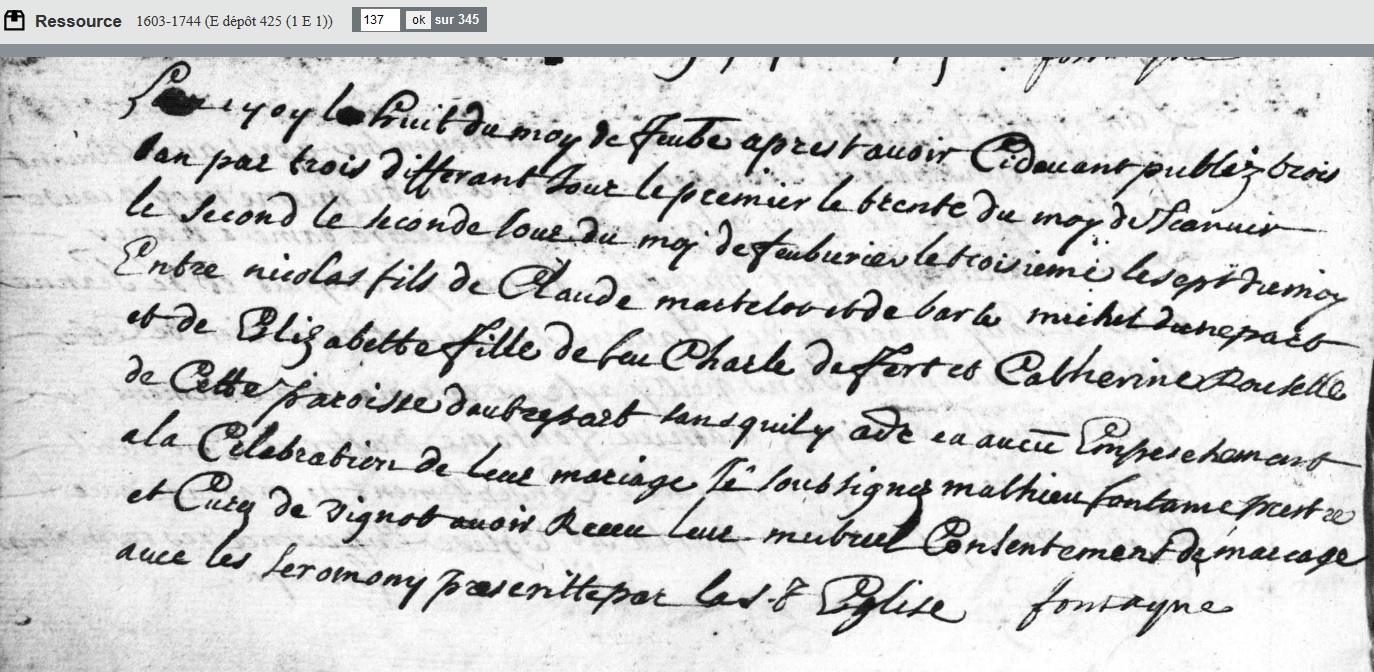 Ressource 1603-1744 (E dépôt 425 (1 E 1)) 137 ok sur 345
le huit du moy de feube aprest auoir Cidouant publéz trois
ban par trois differant Jour le premier le trente du moy de Jeanuir
le second le seconde Jour du moy de feuburier le troisieme le sept du moy
Entre nicolas fils de Claude martelot et de barbe michel dune part
et de Elizabette fille de feu Charle de ffert et Catherine Rouselle
de Cette paroisse dautrepart sans quil y ade eu aucū Empeschemant
a la Celebration de leur mariage Je soubsignez mathieu fontaine prestre
et Curez de vignot auoir Receu leur mutuel Consentement de mariage
auec les seromony prescritte par la ste Eglise fontayne